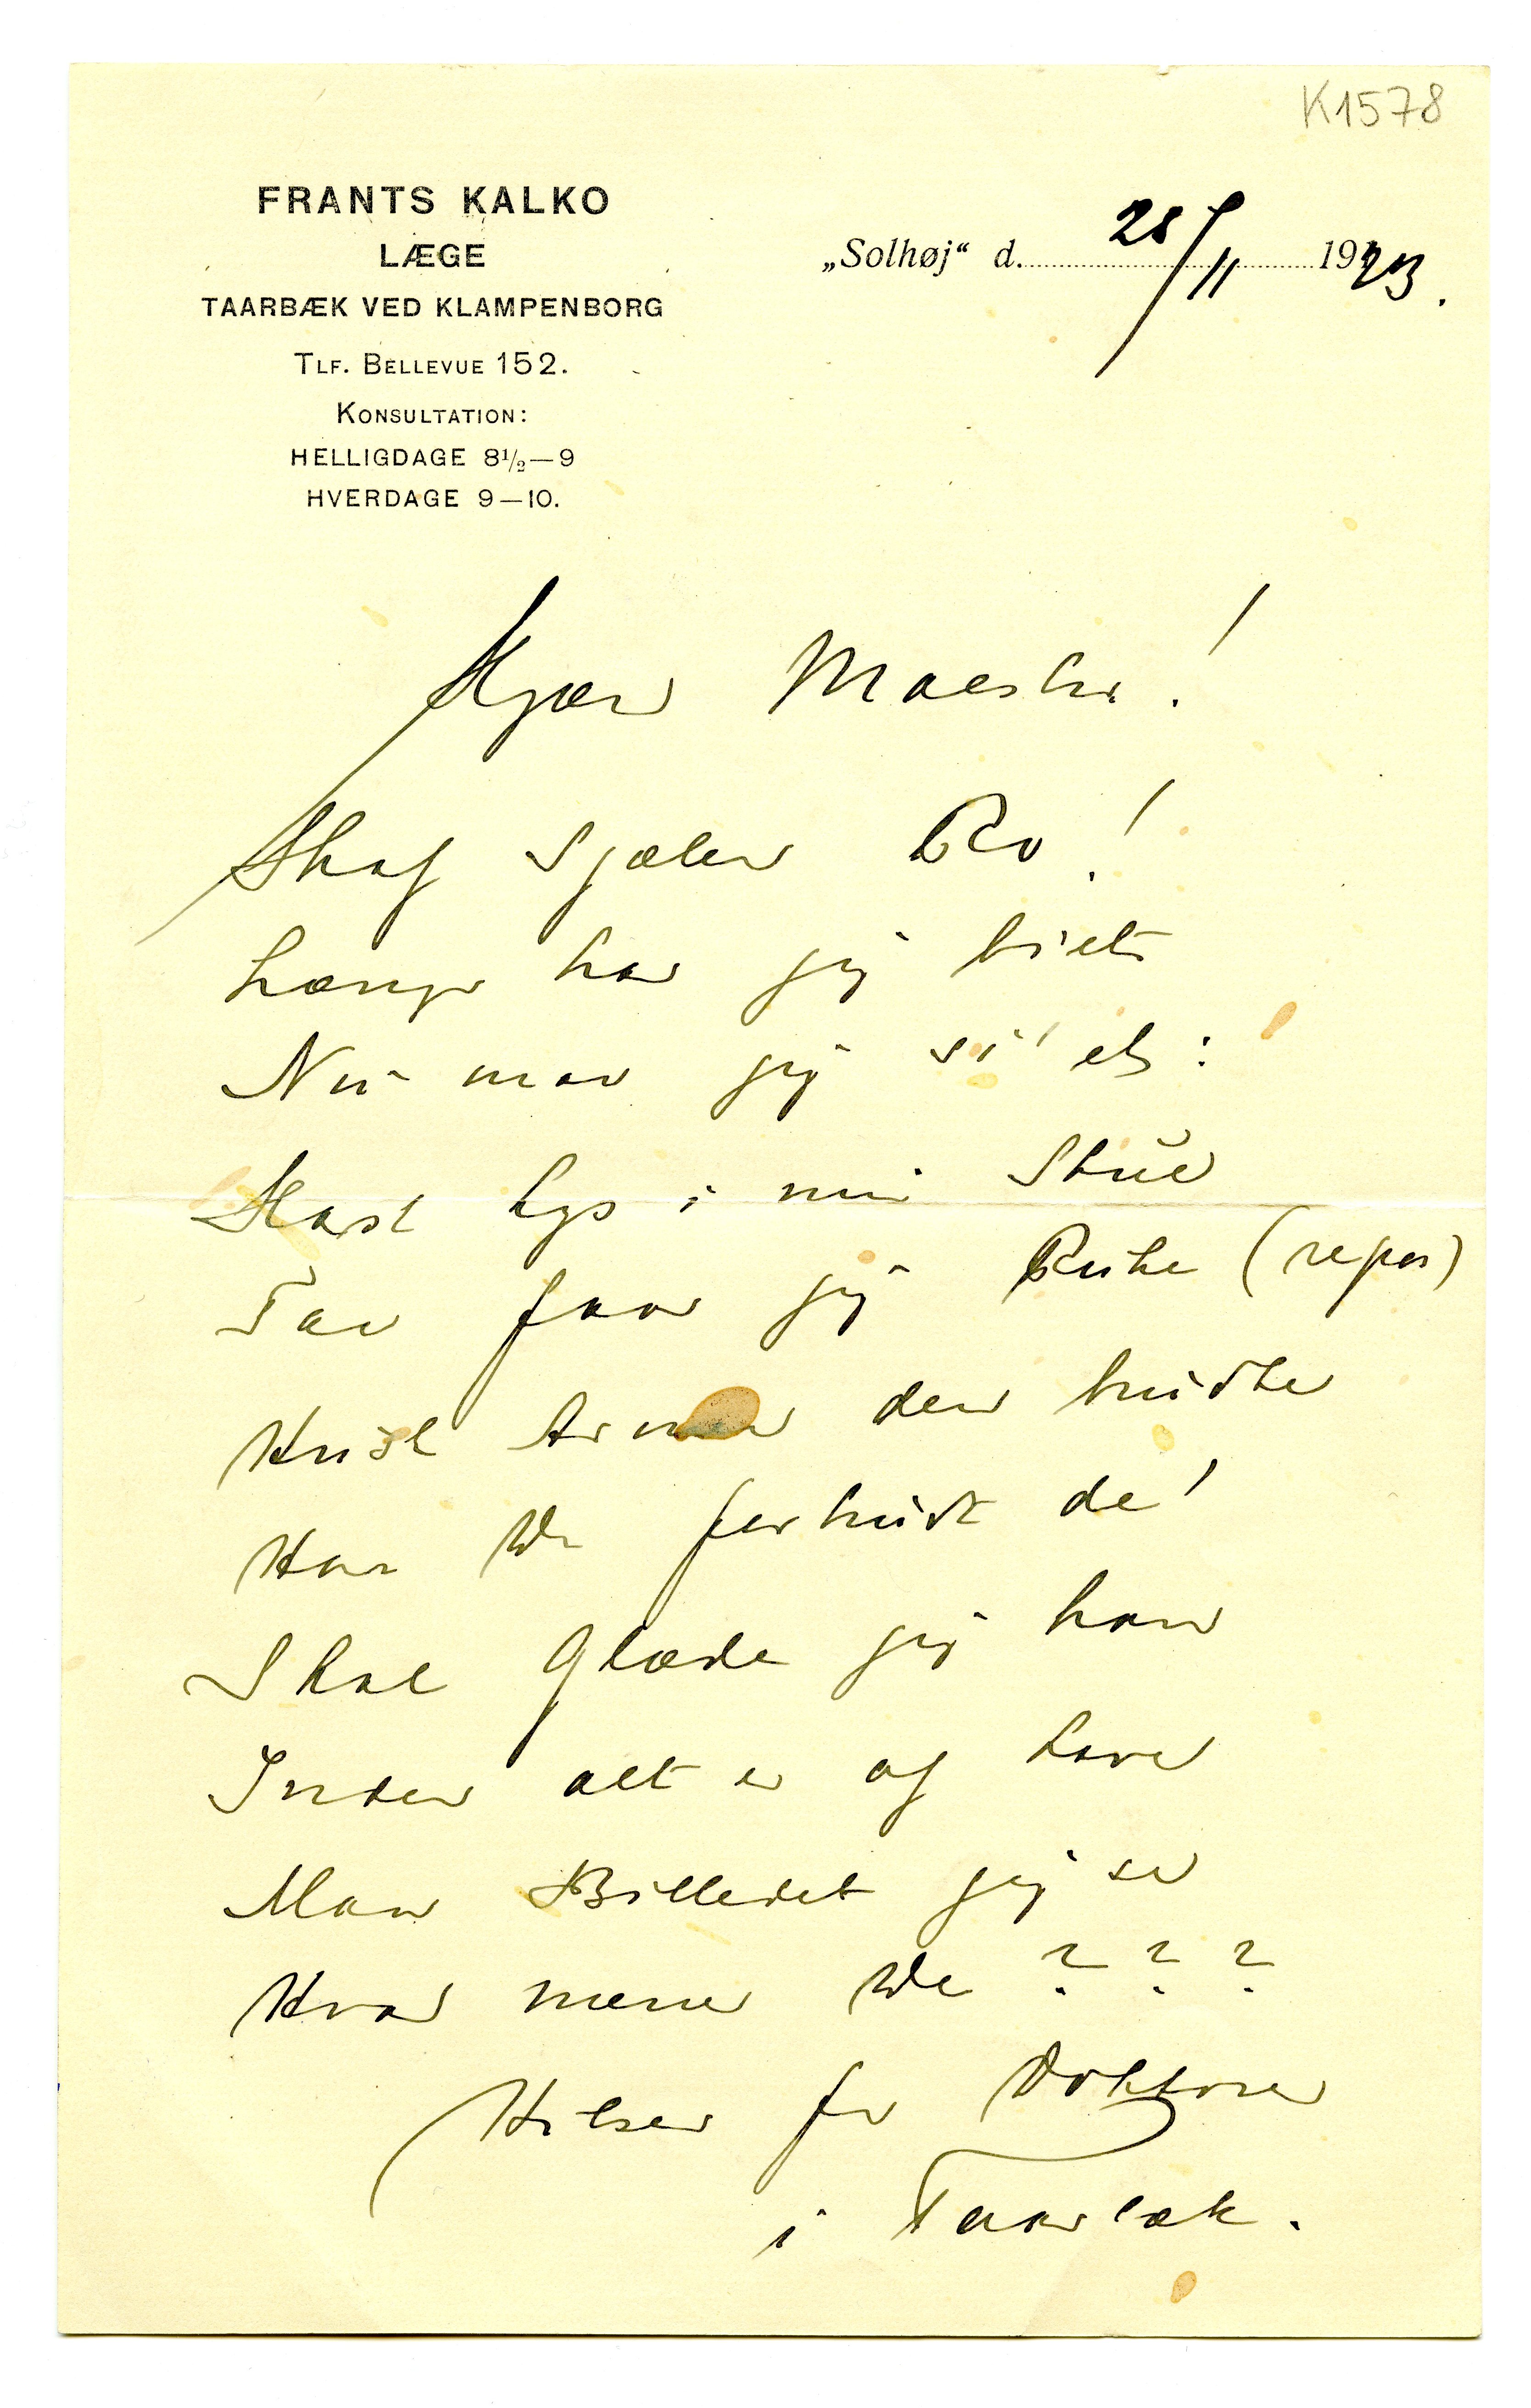 K1578
FRANTS KALKO
LÆGE
TAARBÆK VED KLAMPENBORG
TLF. BELLEVUE 152.
KONSULTATION:
HELLIGDAGE 8½—9
HVERDAGE 9—10.
„Solhøj“ d. 28/11 1923.
Kjære Maestro!
Skaf Sjælen Ro!
Længe har jeg biet
Nu maa jeg si' et:
Kast Lys i min Stue
Faa jeg Ruhe (repos)
Husk Armen den brudte
Har De forbudt de'
Skal Glæde jeg have
Inden alt er af Lave
Maa Billedet jeg se
Hvad mener De ? ? ?
Hilsen fra Doktoren
i Taarbæk.